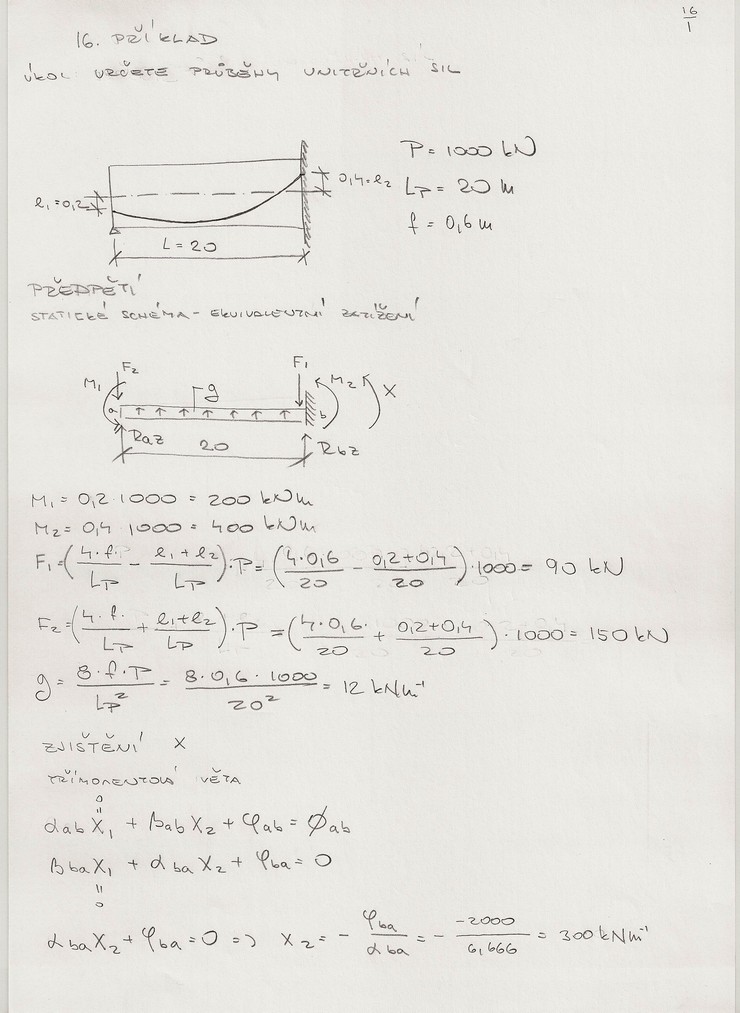 16
1
16. PŘÍKLAD
ÚKOL URČETE PRŮBĚHY VNITŘNÍCH SIL
P = 1000 kN
0,4 = e2
LP = 20 m
e1 = 0,2
f = 0,6 m
L = 20
PŘEDPĚTÍ
STATICKÉ SCHÉMA - EKVIVALENTNÍ ZATÍŽENÍ
F2 F1
M1 g M2 X
a b
Raz 20 Rbz
M1 = 0,2 · 1000 = 200 kNm
M2 = 0,4 · 1000 = 400 kNm
F1 = (4·f/LP - e1+e2/LP)·P = (4·0,6/20 - 0,2+0,4/20)·1000 = 90 kN
F2 = (4·f/LP + e1+e2/LP)·P = (4·0,6/20 + 0,2+0,4/20)·1000 = 150 kN
g = 8·f·P/LP² = 8·0,6·1000/20² = 12 kNm⁻¹
ZJIŠTĚNÍ X
TŘÍMOMENTOVÁ VĚTA
0
"
αab X1 + βab X2 + φab = ϕab
βba X1 + αba X2 + φba = 0
"
0
αba X2 + φba = 0 => X2 = - φba/αba = - -2000/6,666 = 300 kNm⁻¹